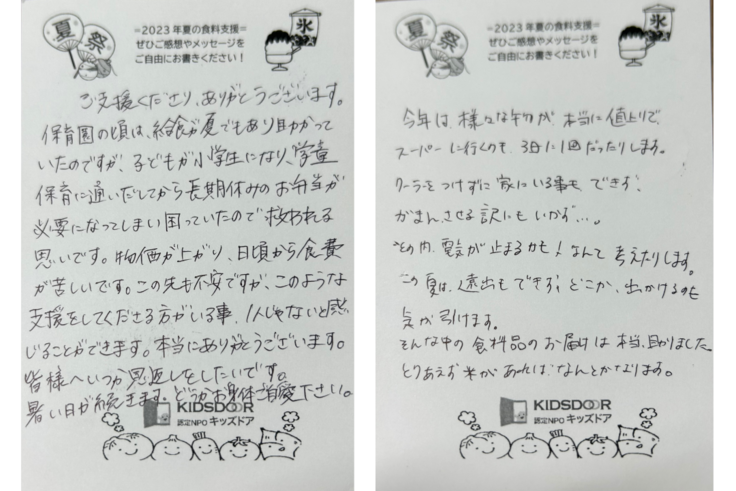 夏祭
氷
=2023年夏の食料支援=
ぜひご感想やメッセージを
ご自由にお書きください！
ご支援くださり、ありがとうございます。
保育園の頃は、給食が夏でもあり助かって
いたのですが、子どもが小学生になり、学童
保育に通いだしてから長期休みのお弁当が
必要になってしまい困っていたので救われる
思いです。物価が上がり、日頃から食費
が苦しいです。この先も不安ですが、このような
支援をしてくださる方がいる事、1人じゃないと感
じることができます。本当にありがとうございます。
皆様へいつか恩返しをしたいです。
暑い日が続きます。どうかお身体ご自愛下さい。
KIDSDOOR
認定NPO キッズドア
夏祭
氷
=2023年夏の食料支援=
ぜひご感想やメッセージを
ご自由にお書きください！
今年は、様々な物が、本当に値上りで、
スーパーに行くのも、3日に1回だったりします。
クーラーをつけずに家にいる事も、できず、
がまんさせる訳にもいかず…。
その内、電気が止まるかも！なんて考えたりします。
この夏は、遠出もできず、どこか、出かけるのも
気が引けます。
そんな中の食料品のお届けは本当、助かりました
とりあえず米があれば、なんとかなります。
KIDSDOOR
認定NPO キッズドア